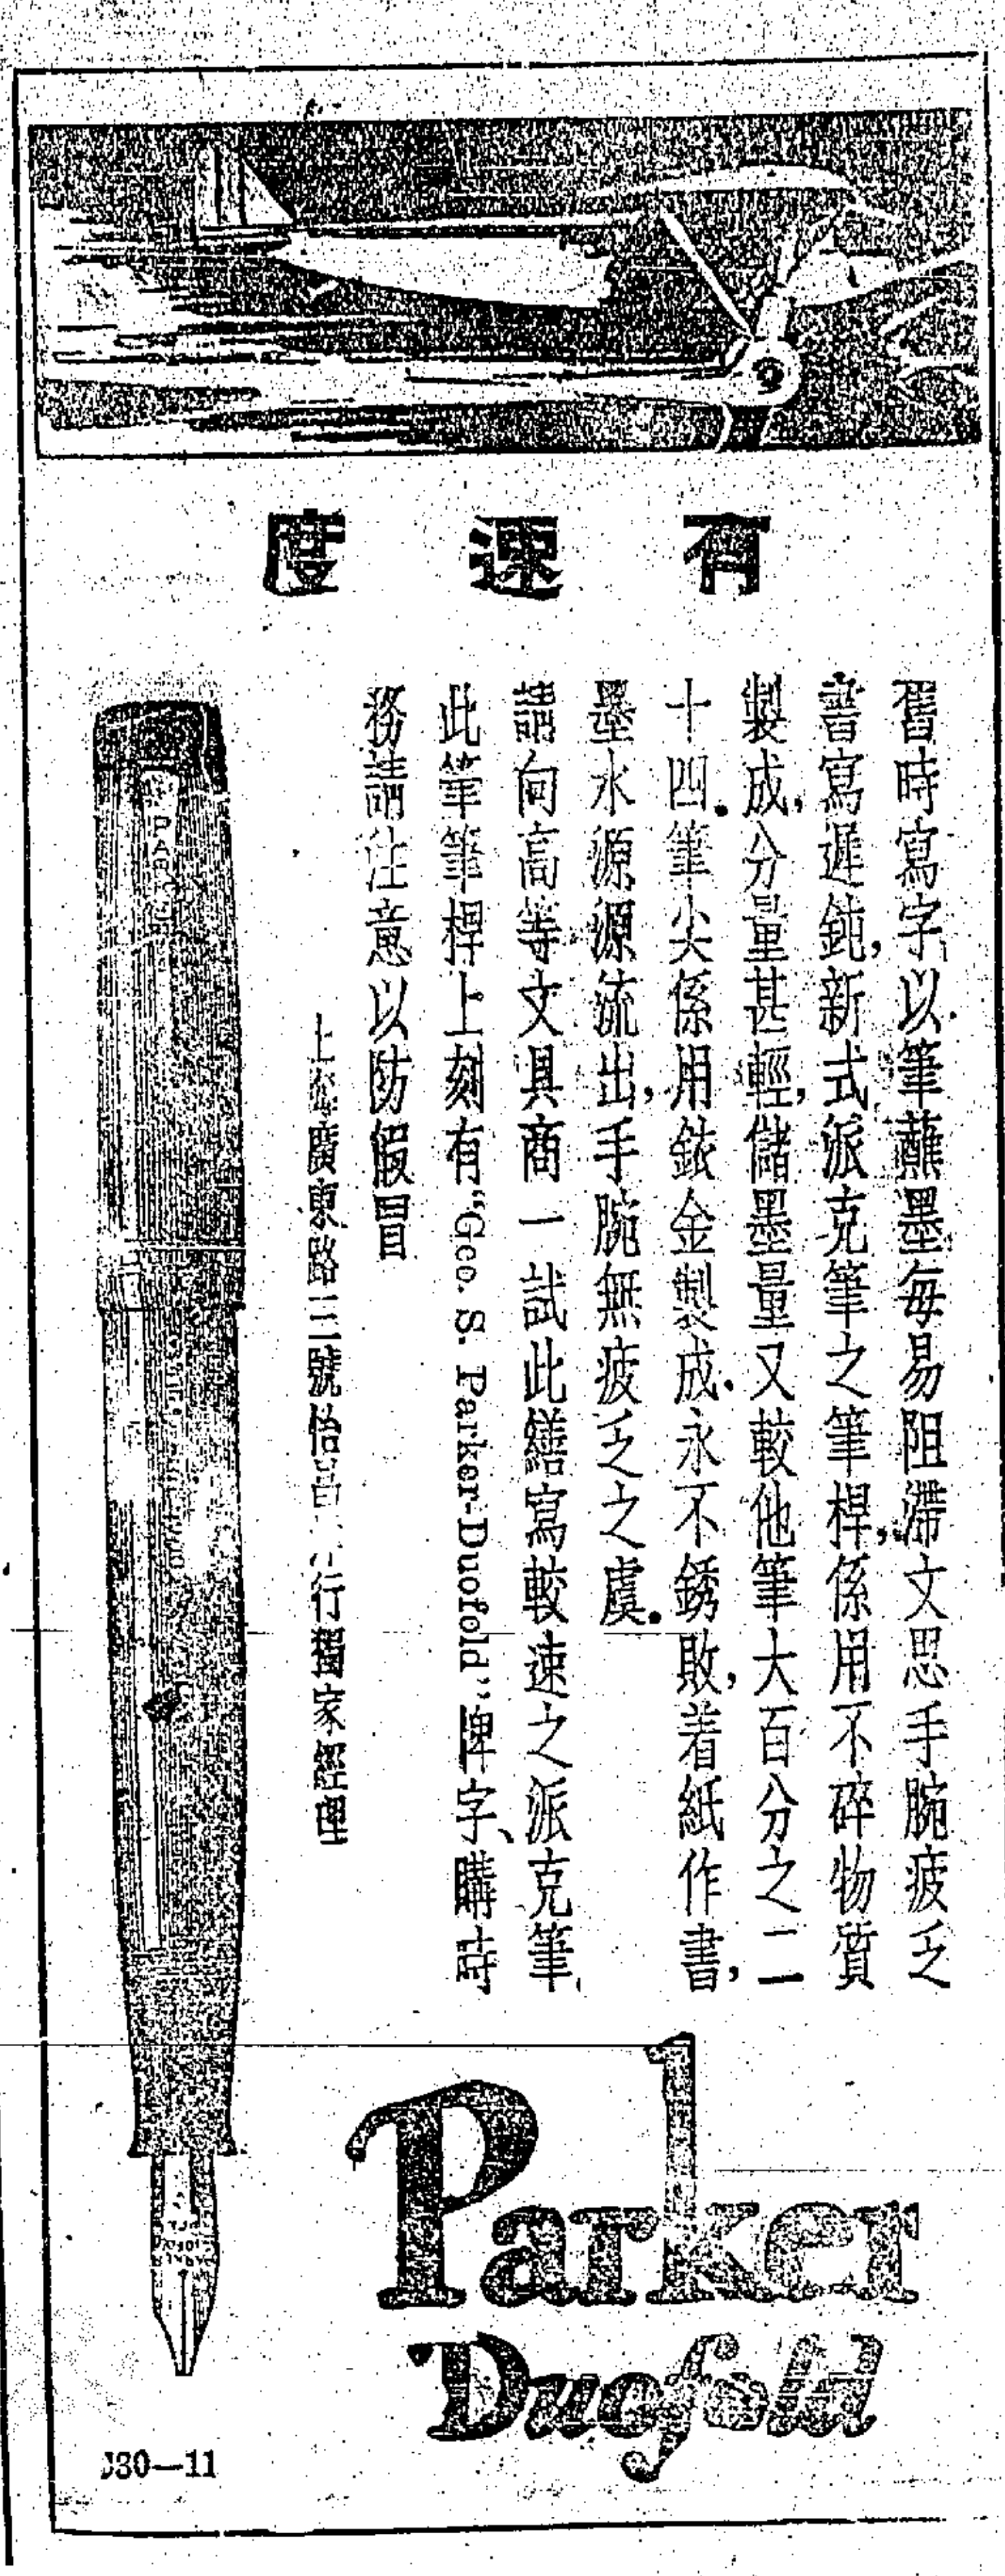 有速度
舊時寫字以筆蘸墨每易阻滯文思手腕疲乏
書寫遲鈍,新式派克筆之筆桿,係用不碎物質
製成,分量甚輕,儲墨量又較他筆大百分之二
十四.筆尖係用銥金製成.永不銹敗,着紙作書,
墨水源源流出,手腕無疲乏之虞.
請向高等文具商一試此繕寫較速之派克筆
此筆筆桿上刻有"Geo. S. Parker-Duofold"牌字、購時
務請注意以防假冒
上海廣東路三號怡昌行獨家經理
Parker
Duofold
30—11